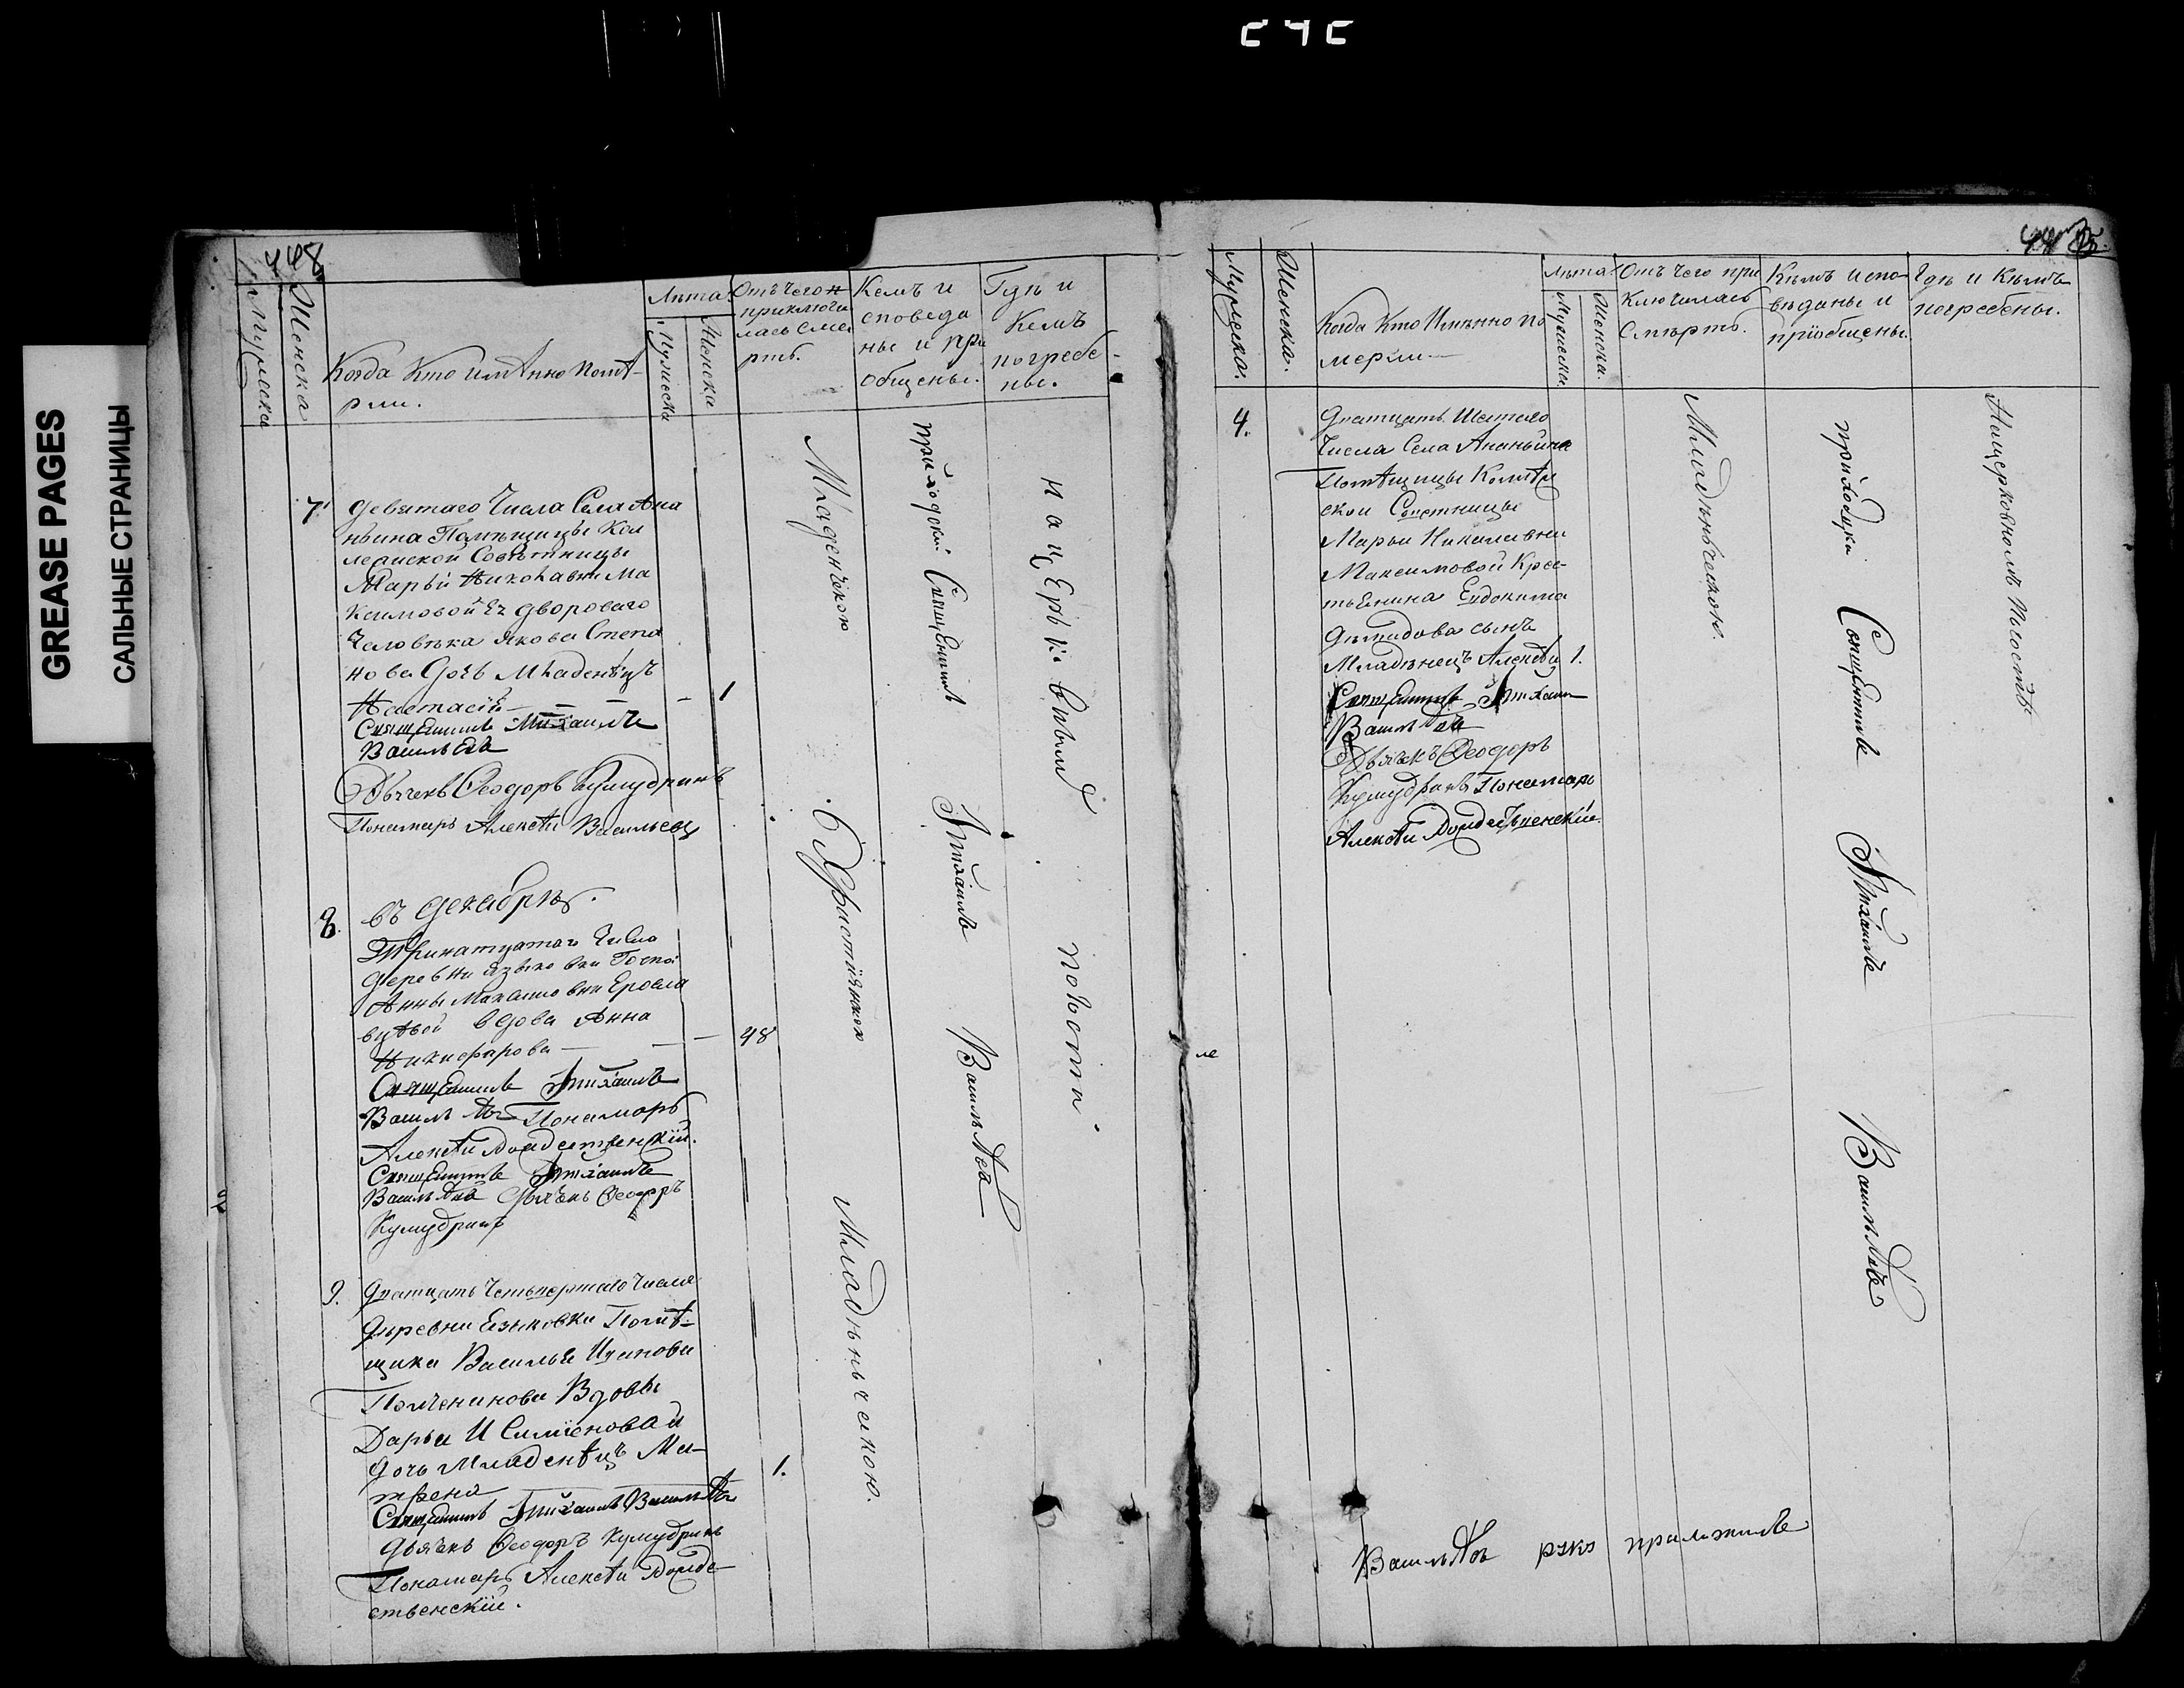 GREASE PAGES
САЛЬНЫЕ СТРАНИЦЫ
448
Мужеска
Женска
Когда Кто имѣнно помѣ-
рли.
Лѣта
Мужеска
Женска
Отъ чего
приключи
лась Сме
рть.
Кемъ и
споведа
ны и при
общены.
Гдѣ и
Кемъ
погребе
ны.
7.
девятаго Числа Села Ана
ньина Помѣщицы Кол
лежской Советницы
Марьи Николавны Ма
ксимовой Ея двороваго
Человѣка Якова Степа
нова Дочь Младенецъ
Настасия
1
Священникъ Михаилъ
Васильевъ
Дьячекъ Ѳеодоръ Кумудринъ
Пономарь Алексѣй Васильевъ
Младенческою
приходской Священникъ Михаилъ Васильевъ
на церьковном
погости.
въ Декабрѣ.
8.
Тринатцатаго Числа
деревни Языковки Госпо
Анны Ерофла
вцѣвой вдова Анна
Никифарова
48
Священникъ Михаилъ
Васильевъ Пономарь
Алексѣй Рождественскій.
Священникъ Михаилъ
Васильевъ Дьячекъ Ѳеодоръ
Кумудринъ
9.
Дватцать Четьвертаго Числа
Дѣревни Езыковки Помѣ-
щика Василья Иванова
Вдовы
Дарьи
дочь Младенѣцъ Ма-
трена
1.
Священникъ Михаилъ Васильевъ
Дьячекъ Ѳеодоръ Кумудринъ
Пономарь Алексѣй Рожде-
ственскій.
Младѣнческою.
Мужеска.
Женска.
Когда Кто Имѣнно по
мерли.
Лѣта
Мужеска.
Женска.
Отъ Чего при
ключилась
Смѣрть.
Кѣмъ испо-
вѣданы и
приобщены.
Гдѣ и Кѣмъ
погребены.
4.
Дватцать Шестого
Числа Села Ананьина
Помѣщицы Коллѣж
ской Советницы
Марьи Николавны
Максимовой Крес-
тьенина Евдокима
Дѣмидова сынъ
Младѣнецъ Алексѣй
1.
Священникъ Михаилъ
Васильевъ
Дьячекъ Ѳеодоръ
Кумудринъ Пономарь
Алексѣй Рождественскій.
Младѣнческою.
приходски Священникъ Михаилъ Васильевъ
Нацерковномъ Погостѣ
Васильевъ руку приложилъ